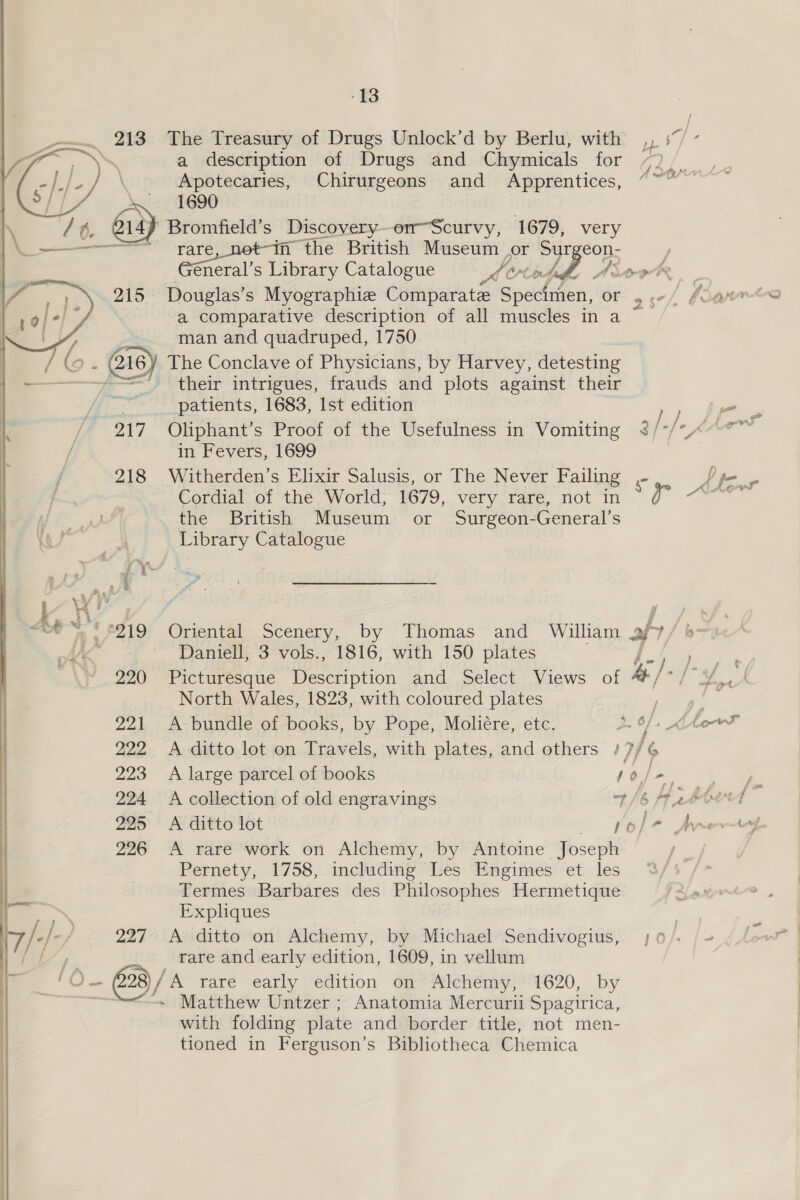 13
213 The Treasury of Drugs Unlock'd by Berlu, with
a description of Drugs and Chymicals for
Apotecaries, Chirurgeons and Apprentices,
1690
214 Bromfield's Discovery on Scurvy, 1679, very
rare, not in the British Museum or Surgeon-
General's Library Catalogue
215 Douglas's Myographiæ Comparatæ Specimen, or
a comparative description of all muscles in a
man and quadruped, 1750
216 The Conclave of Physicians, by Harvey, detesting
their intrigues, frauds and plots against their
patients, 1683, 1st edition
217 Oliphant's Proof of the Usefulness in Vomiting 3/-/-
in Fevers, 1699
218 Witherden's Elixir Salusis, or The Never Failing
Cordial of the World, 1679, very rare, not in
the British Museum or Surgeon-General's
Library Catalogue
219 Oriental Scenery, by Thomas and William
Daniell, 3 vols., 1816, with 150 plates
220 Picturesque Description and Select Views of
North Wales, 1823, with coloured plates
221 A bundle of books, by Pope, Moliére, etc.
222 A ditto lot on Travels, with plates, and others 17/6
223 A large parcel of books 10/-
224 A collection of old engravings 7/6
225 A ditto lot 10/-
226 A rare work on Alchemy, by Antoine Joseph
Pernety, 1758, including Les Engimes et les
Termes Barbares des Philosophes Hermetique
Expliques
7/-/- 227 A ditto on Alchemy, by Michael Sendivogius,
rare and early edition, 1609, in vellum
228 A rare early edition on Alchemy, 1620, by
Matthew Untzer; Anatomia Mercurii Spagirica,
with folding plate and border title, not men-
tioned in Ferguson's Bibliotheca Chemica